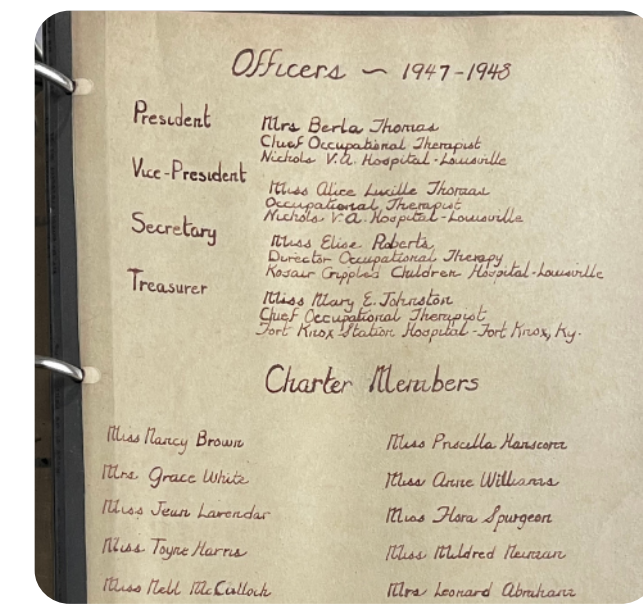 Officers ~ 1947-1948
President
Mrs Berla Thomas
Chief Occupational Therapist
Nichols V.A. Hospital - Louisville
Vice-President
Miss Alice Lucille Thomas
Occupational Therapist
Nichols V.A. Hospital - Louisville
Secretary
Miss Elise Roberts
Director Occupational Therapy
Kosair Crippled Children Hospital - Louisville
Treasurer
Miss Mary E. Johnston
Chief Occupational Therapist
Fort Knox Station Hospital - Fort Knox, Ky.
Charter Members
Miss Nancy Brown
Miss Priscilla Hanscom
Mrs Grace White
Miss Anne Williams
Miss Jean Lavendar
Miss Flora Spurgeon
Miss Toyne Harris
Miss Mildred
Miss Nell McCulloch
Mrs Leonard Abrahams